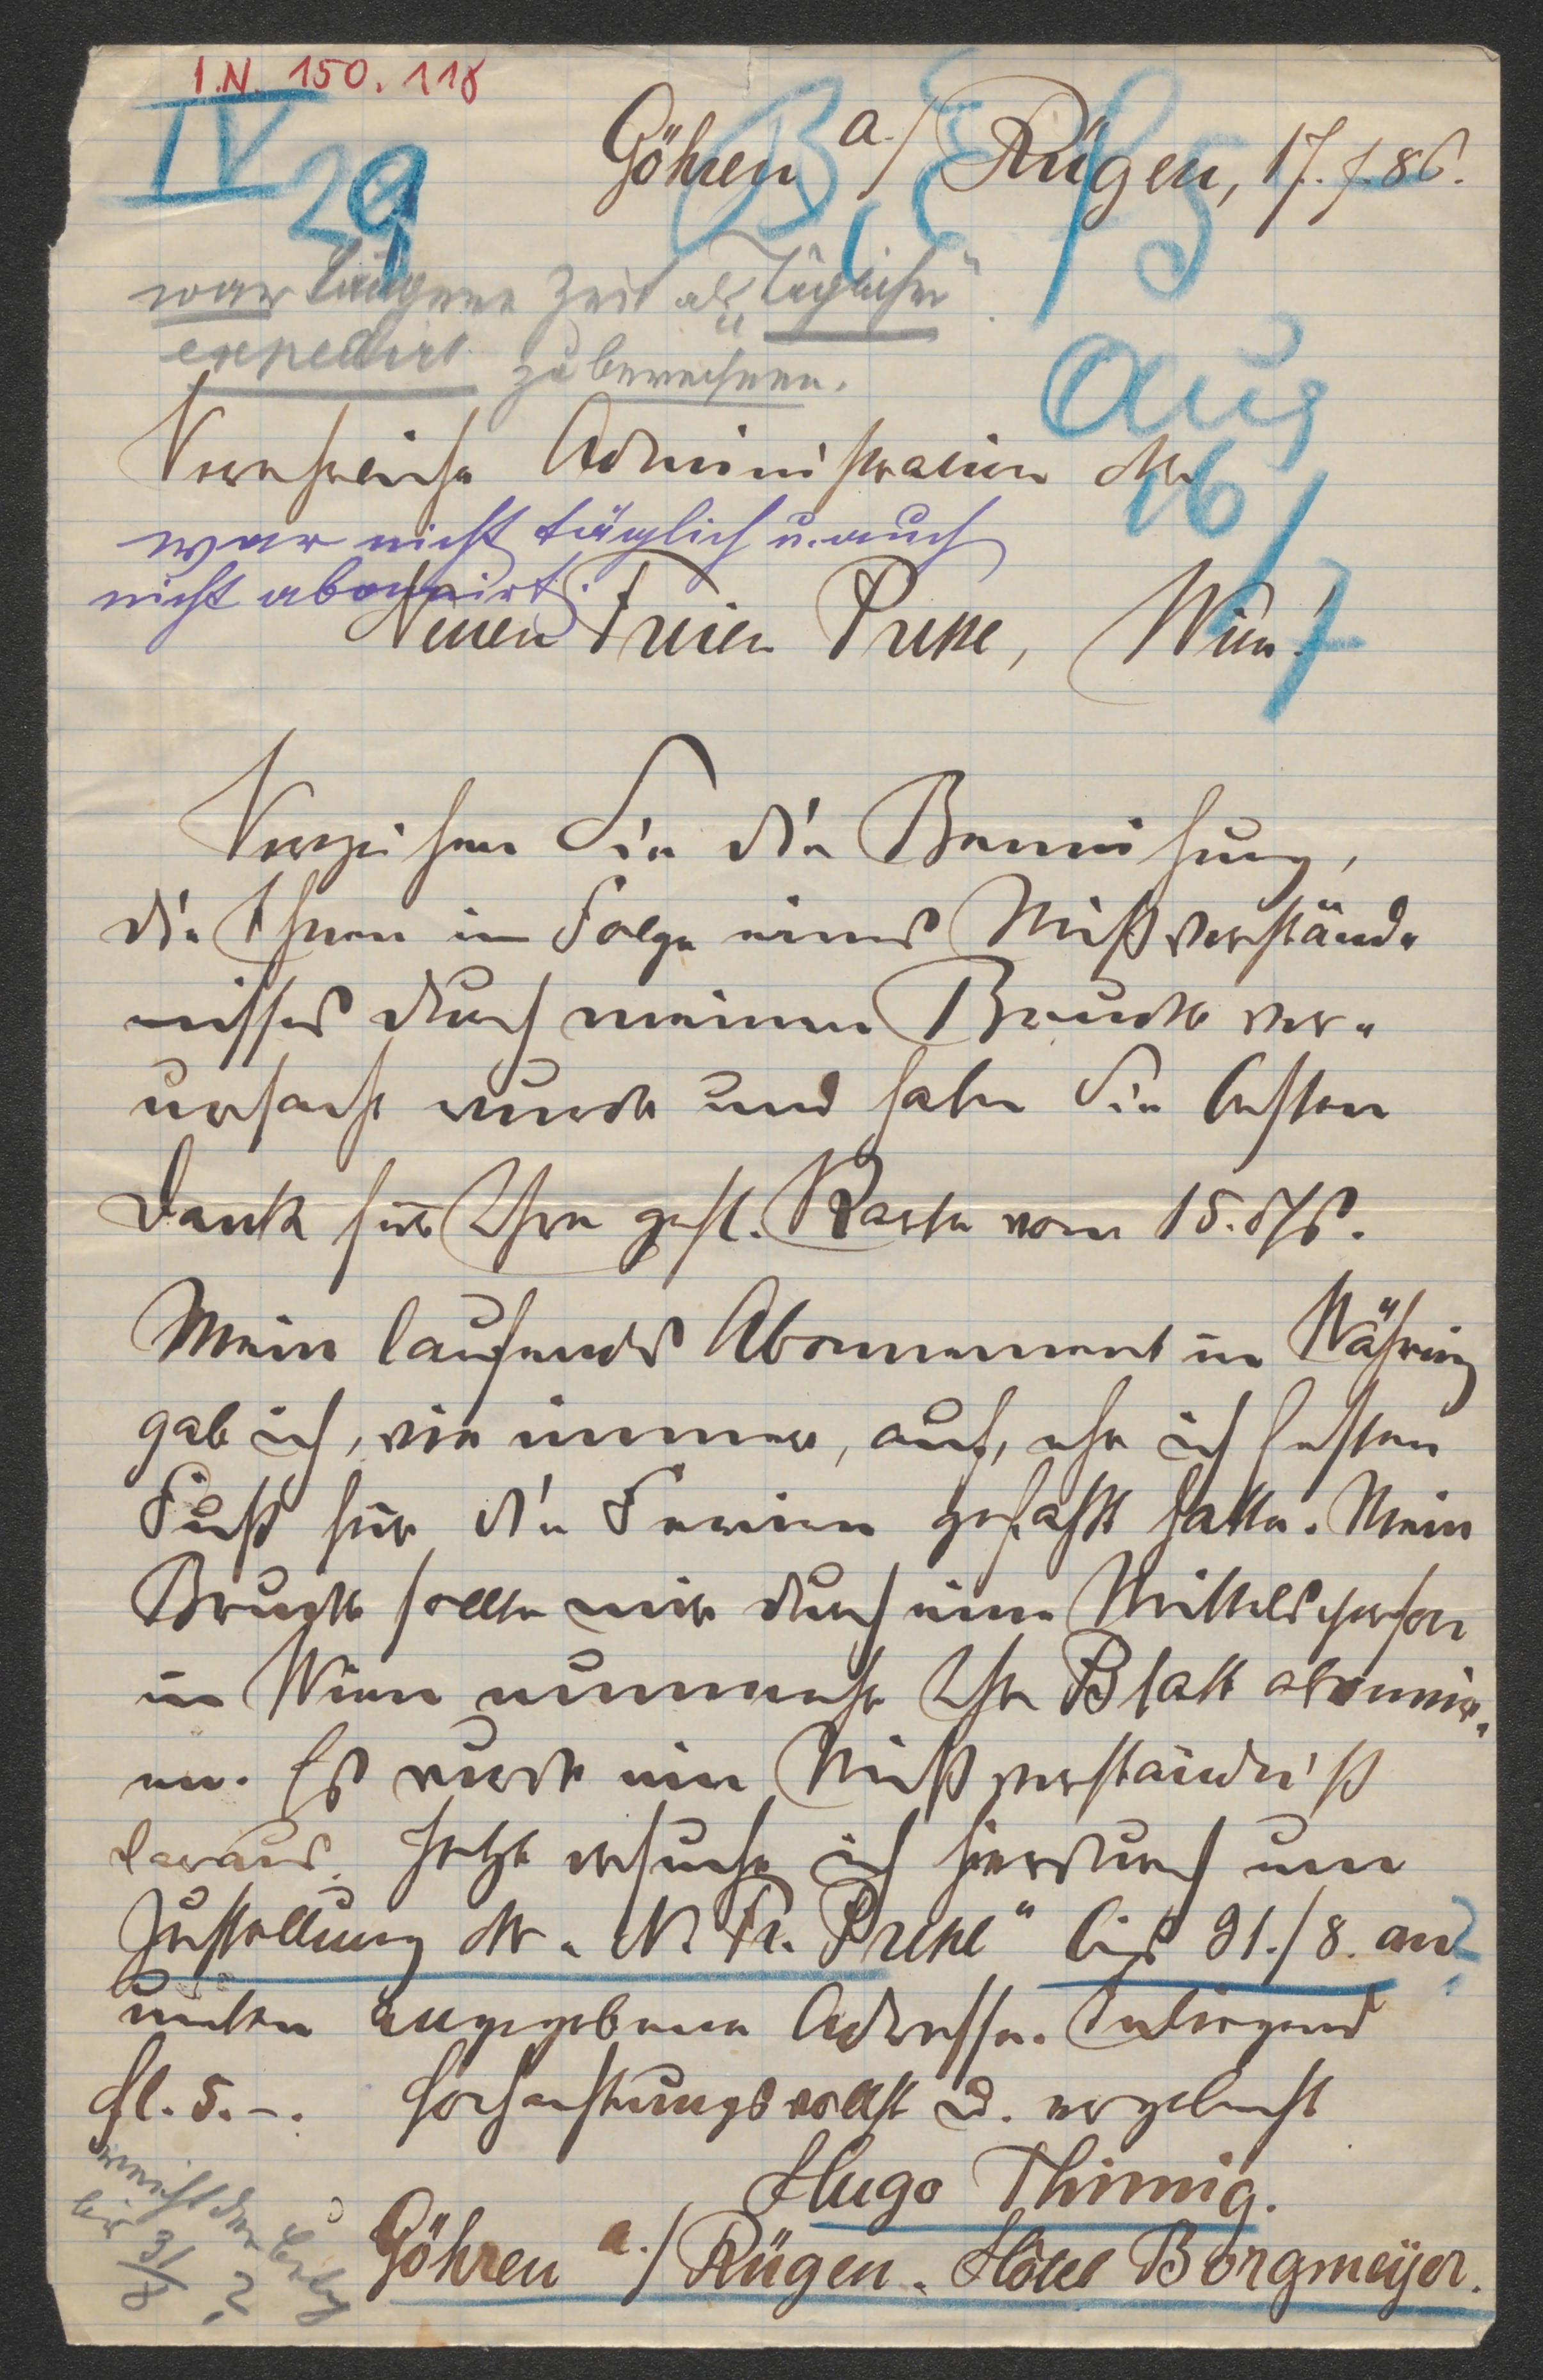 I.N. 150.118
IV
29
B, E / 5
Göhren a./ Rügen, 17.7.86.
war längere Zeit als „Täglicher"
expedirt zu berechnen.
aus
16/7
Verehrliche Administration der
war nicht täglich u. auch
nicht abonnirt.
Neuen Freien Presse, Wien!
Verzeihen Sie die Bemühung,
die Ihnen in Folge eines Mißverständ-
nisses durch meinen Bruder ver-
ursacht wurde und haben Sie besten
Dank für Ihre gefl. Karte vom 15. dß.
Mein laufendes Abonnement in Währing
gab ich, wie immer, auf, ehe ich festen
Fuß für die Ferien gefaßt hatte. Mein
Bruder sollte mir durch eine Mittelsperson
in Wien nunmehr Ihr Blatt abonnir-
en. Es wurde ein Mißverständniß
daraus. Jetzt ersuche ich hierdurch um
Zustellung der „N. Fr. Presse" bis 31./8. an
unten angegebene Adresse. Inliegend
fl. 5.-. Hochachtungsvollst u. ergebenst
Hugo Thimig.
Göhren a./ Rügen. Hôtel Borgmeyer.
bis 31/8 ?